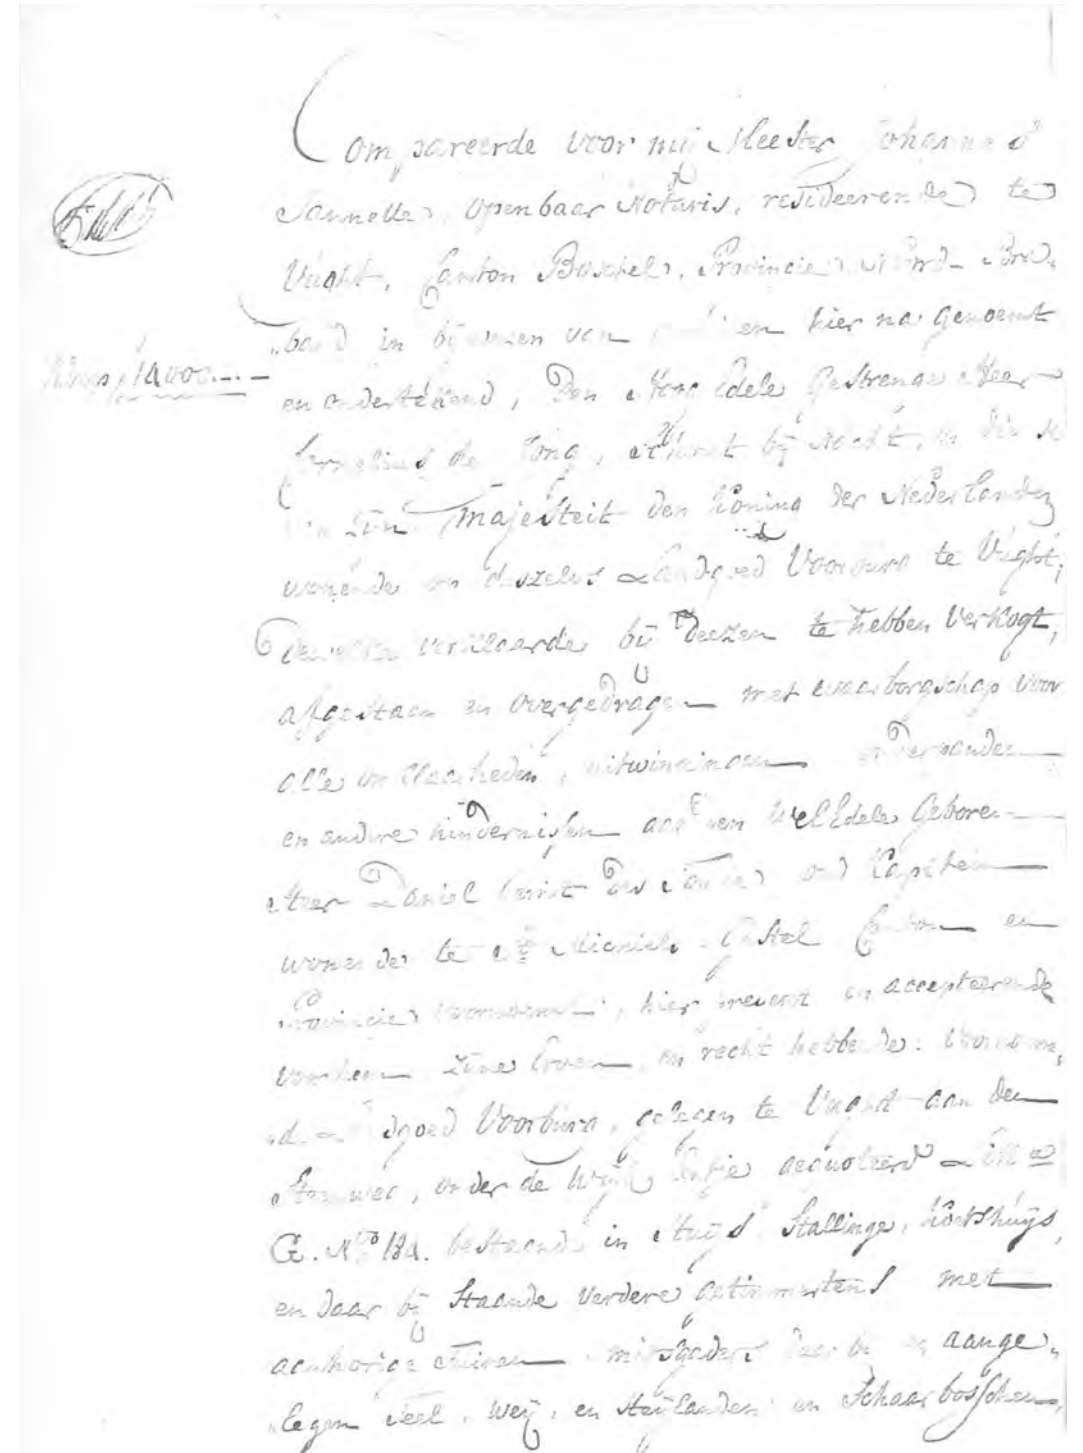 Compareerde voor mij Meester Johannes
Jannette, openbaar Notaris, resideerende te
Vught, Canton Boxtel, Provincie Noord-Bra„
„band in bijwezen van hier na genoemt
en ondertekend, Den Hoog Edele Gestrenge Heer
Cornelius de Jong, Schout bij Nacht, in die
Zijn Majesteit den Koning der Nederlanden
wonende op deszelvs Landgoed Voorburg te Vught,
Dewelke verklaarde bij deezen te hebben Verkogt,
afgestaan en overgedragen met waarborgschap voor
alle uitwinningen onderpanden
en andere hindernissen aan den WelEdele Geboren
Heer Daniel des oud Capitein
wonende te St. Michiels Gestel Canton en
Provincie voornoemt, hier present en accepteerende
voor hem zijne Erven en recht hebbende: Voornoem„
„d Landgoed Voorburg, gelegen te Vught aan den
Steenweg, onder de Wijk gequoteerd
G. No. 184. bestaande in Huijs Stallinge, Koetshuijs,
en daar bij Staande verdere getimmertens met
aanhorige Tuinen mitsgaders daar bij en aange„
„legen Teel, Weij, en Heijlanden en Schaarbosschen,